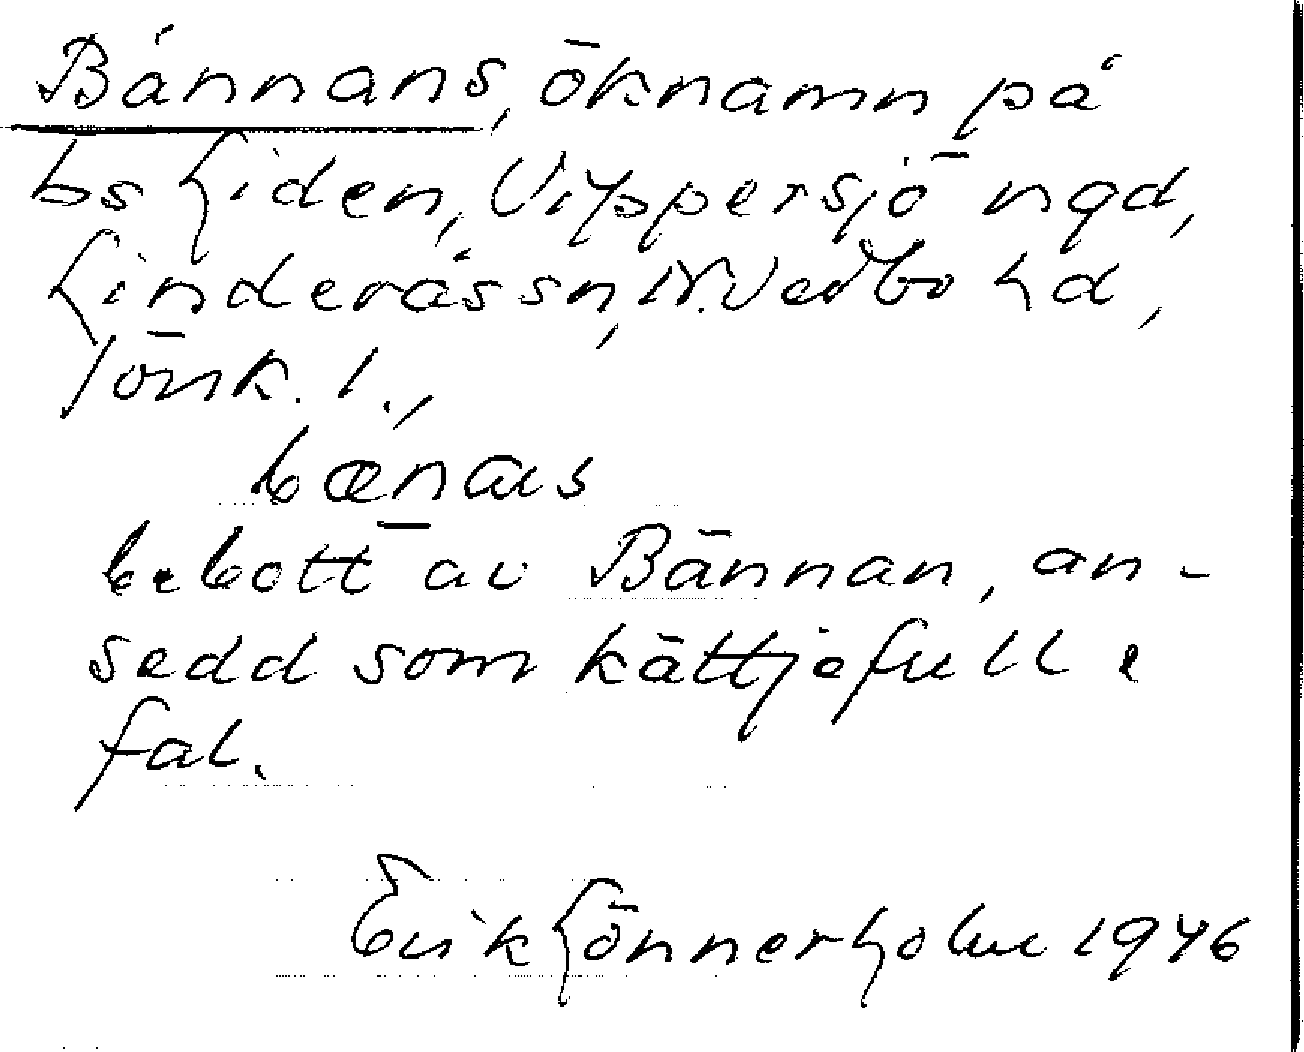 Bånnans, öknamn på
bs Liden, Vippersjö ngd,
Linderås sn, N. Vedbo hd,
Jönk. l.,
bœnas
bebott av Bännan, an-
sedd som kättjefull e
fal.
Erik Lönnerholm 1946